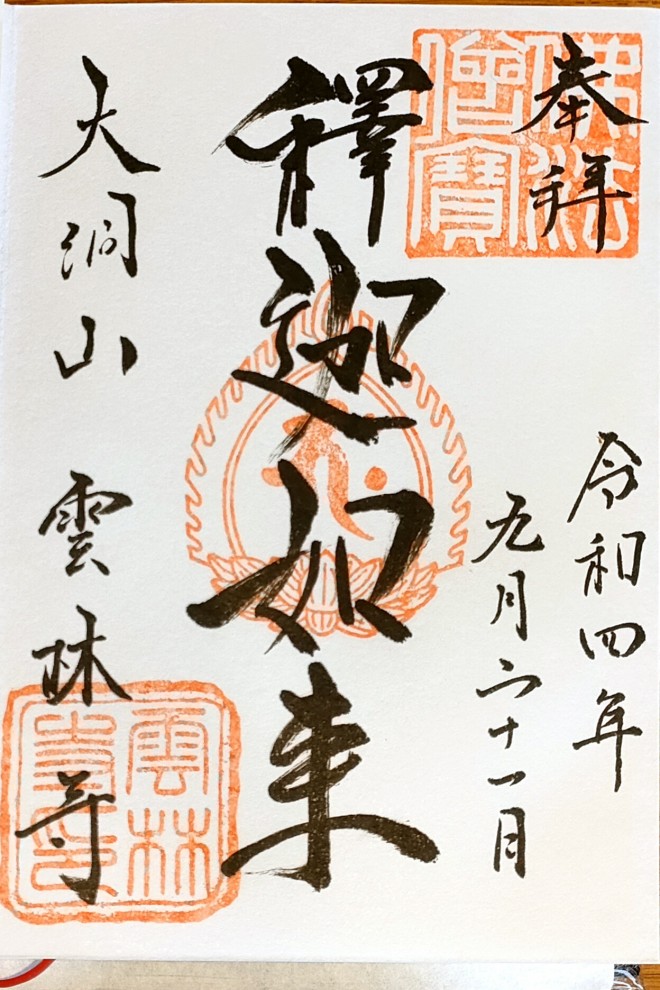 奉拝
佛法僧寶
令和四年
九月二十一日
釋迦如来
大洞山 雲林寺
雲林寺印